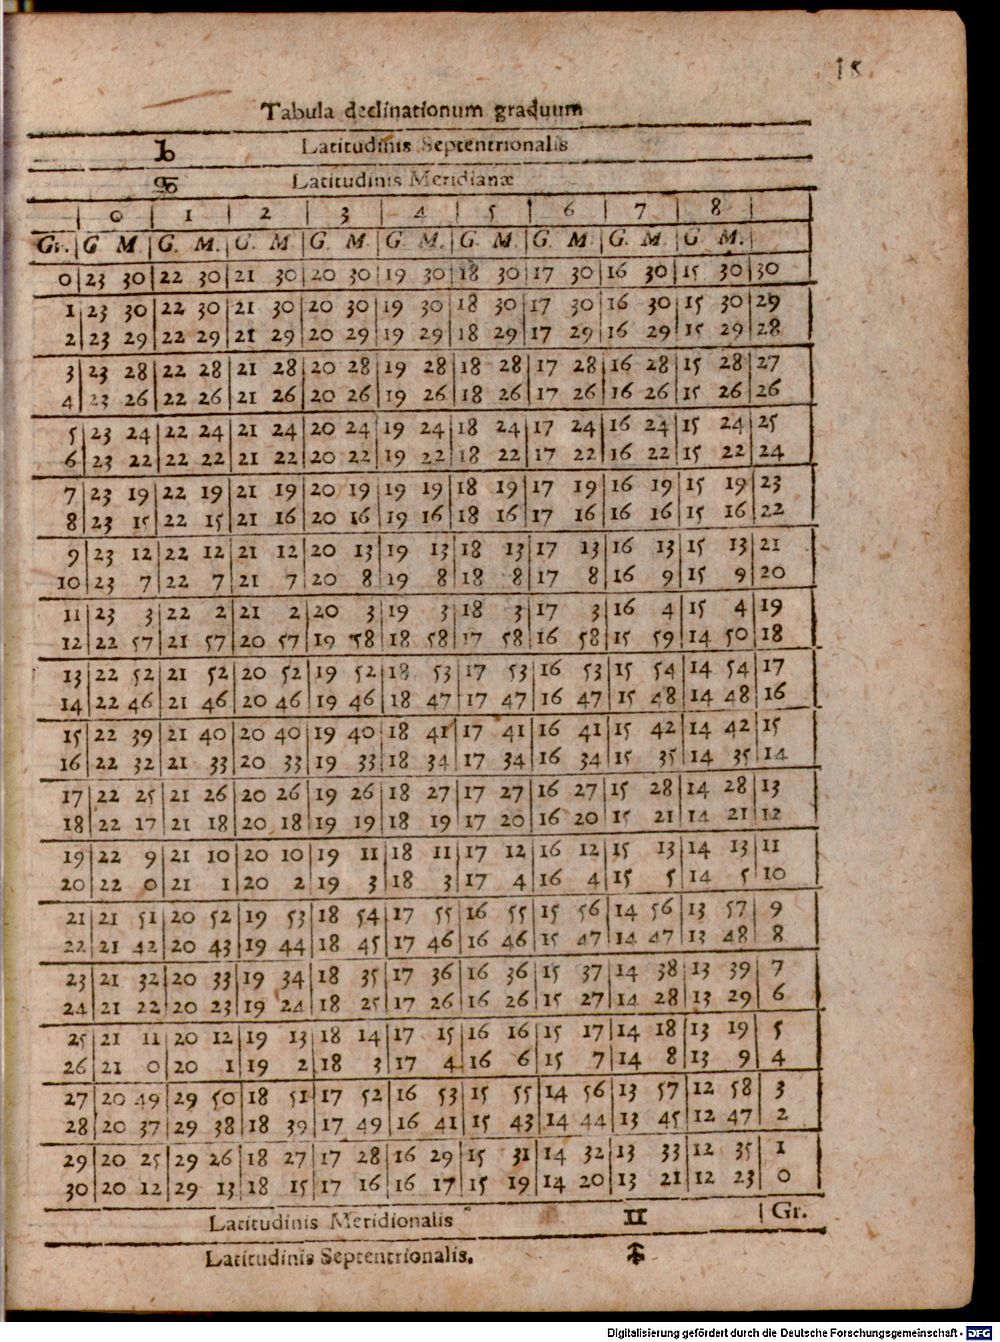 15
Tabula declinationum graduum
Latitudinis Septentrionalis
Latitudinis Meridianæ
0 1 2 3 4 5 6 7 8
Gr. G M. G. M. G. M G. M. G. M. G. M. G. M G. M. G M.
0 23 30 22 30 21 30 20 30 19 30 18 30 17 30 16 30 15 30 30
1 23 30 22 30 21 30 20 30 19 30 18 30 17 30 16 30 15 30 29
2 23 29 22 29 21 29 20 29 19 29 18 29 17 29 16 29 15 29 28
3 23 28 22 28 21 28 20 28 19 28 18 28 17 28 16 28 15 28 27
4 23 26 22 26 21 26 20 26 19 26 18 26 17 26 16 26 15 26 26
5 23 24 22 24 21 24 20 24 19 24 18 24 17 24 16 24 15 24 25
6 23 22 22 22 21 22 20 22 19 22 18 22 17 22 16 22 15 22 24
7 23 19 22 19 21 19 20 19 19 19 18 19 17 19 16 19 15 19 23
8 23 15 22 15 21 16 20 16 19 16 18 16 17 16 16 16 15 16 22
9 23 12 22 12 21 12 20 13 19 13 18 13 17 13 16 13 15 13 21
10 23 7 22 7 21 7 20 8 19 8 18 8 17 8 16 9 15 9 20
11 23 3 22 2 21 2 20 3 19 3 18 3 17 3 16 4 15 4 19
12 22 57 21 57 20 57 19 58 18 58 17 58 16 58 15 59 14 50 18
13 22 52 21 52 20 52 19 52 18 53 17 53 16 53 15 54 14 54 17
14 22 46 21 46 20 46 19 46 18 47 17 47 16 47 15 48 14 48 16
15 22 39 21 40 20 40 19 40 18 41 17 41 16 41 15 42 14 42 15
16 22 32 21 33 20 33 19 33 18 34 17 34 16 34 15 35 14 35 14
17 22 25 21 26 20 26 19 26 18 27 17 27 16 27 15 28 14 28 13
18 22 17 21 18 20 18 19 19 18 19 17 20 16 20 15 21 14 21 12
19 22 9 21 10 20 10 19 11 18 11 17 12 16 12 15 13 14 13 11
20 22 0 21 1 20 2 19 3 18 3 17 4 16 4 15 5 14 5 10
21 21 51 20 52 19 53 18 54 17 55 16 55 15 56 14 56 13 57 9
22 21 42 20 43 19 44 18 45 17 46 16 46 15 47 14 47 13 48 8
23 21 32 20 33 19 34 18 35 17 36 16 36 15 37 14 38 13 39 7
24 21 22 20 23 19 24 18 25 17 26 16 26 15 27 14 28 13 29 6
25 21 11 20 12 19 13 18 14 17 15 16 16 15 17 14 18 13 19 5
26 21 0 20 1 19 2 18 3 17 4 16 6 15 7 14 8 13 9 4
27 20 49 29 50 18 51 17 52 16 53 15 55 14 56 13 57 12 58 3
28 20 37 29 38 18 39 17 49 16 41 15 43 14 44 13 45 12 47 2
29 20 25 29 26 18 27 17 28 16 29 15 31 14 32 13 33 12 35 1
30 20 12 29 13 18 15 17 16 16 17 15 19 14 20 13 21 12 23 0
Latitudinis Meridionalis Gr.
Latitudinis Septentrionalis.
Digitalisierung gefördert durch die Deutsche Forschungsgemeinschaft - DFG